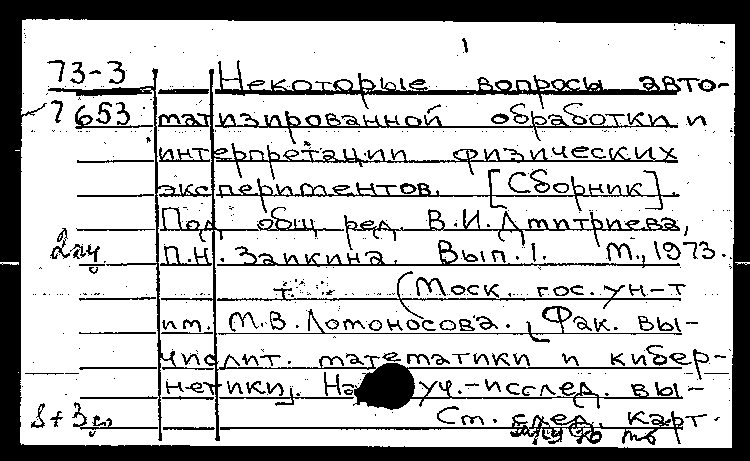 1
73-3 Некоторые вопросы авто-
7653 матизированной обработки и
интерпретации физических
экспериментов. [Сборник].
Под общ. ред. В.И. Дмитриева,
П.Н. Заикина. Вып. 1. М., 1973.
(Моск. гос. ун-т
им. М.В. Ломоносова. [Фак. вы-
числит. математики и кибер-
нетики]. Науч.-исслед. вы-
Ст. след. карт.